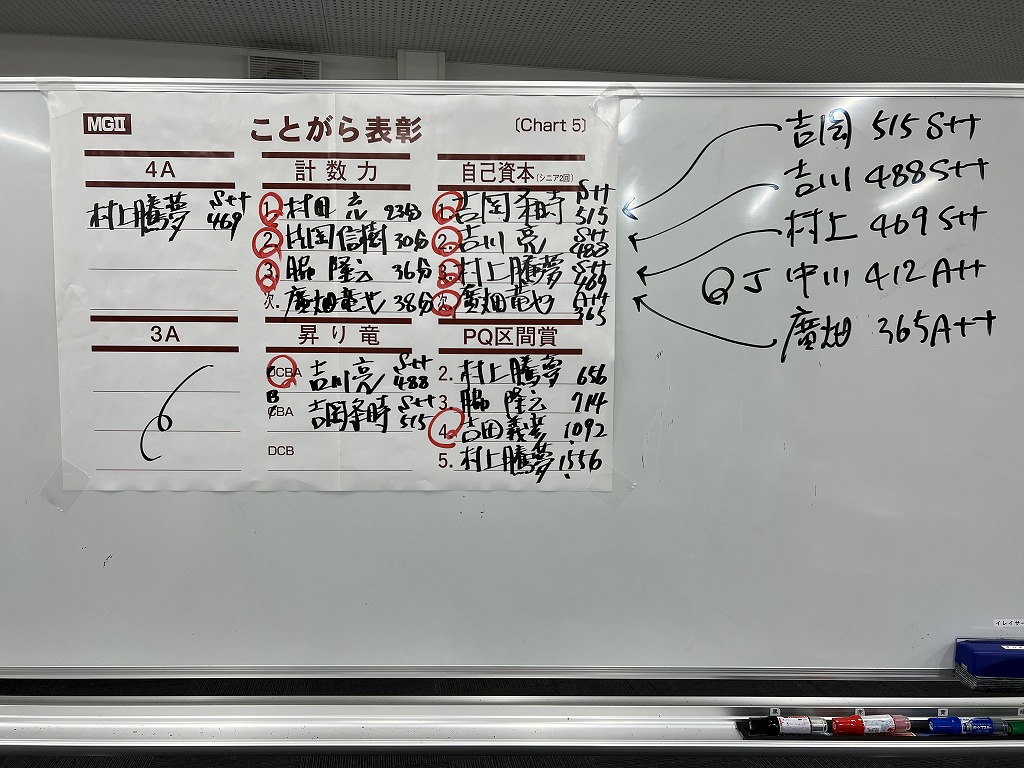 MGⅡ
ことがら表彰
(Chart 5)
4A
村上騰夢 S++ 469
3A
計数力
1. 村田 亮 23分
2. 片岡信樹 30分
3. 脇 隆 36分
次. 廣畑竜也 38分
昇り竜
DCBA 吉川亮 S++ 488
B
CBA 吉岡 時 S++ 515
DCB
自己資本(シニア2回)
1. 吉岡 時 S++ 515
2. 吉川亮 S++ 488
3. 村上騰夢 S++ 469
次. 廣畑竜也 A++ 365
PQ区間賞
2. 村上騰夢 656
3. 脇 隆 714
4. 吉田義 1,092
5. 村上騰夢 1,556
吉岡 515 S++
吉川 488 S++
村上 469 S++
QJ 中川 412 A++
廣畑 365 A++
イレイサー
黒
赤
青